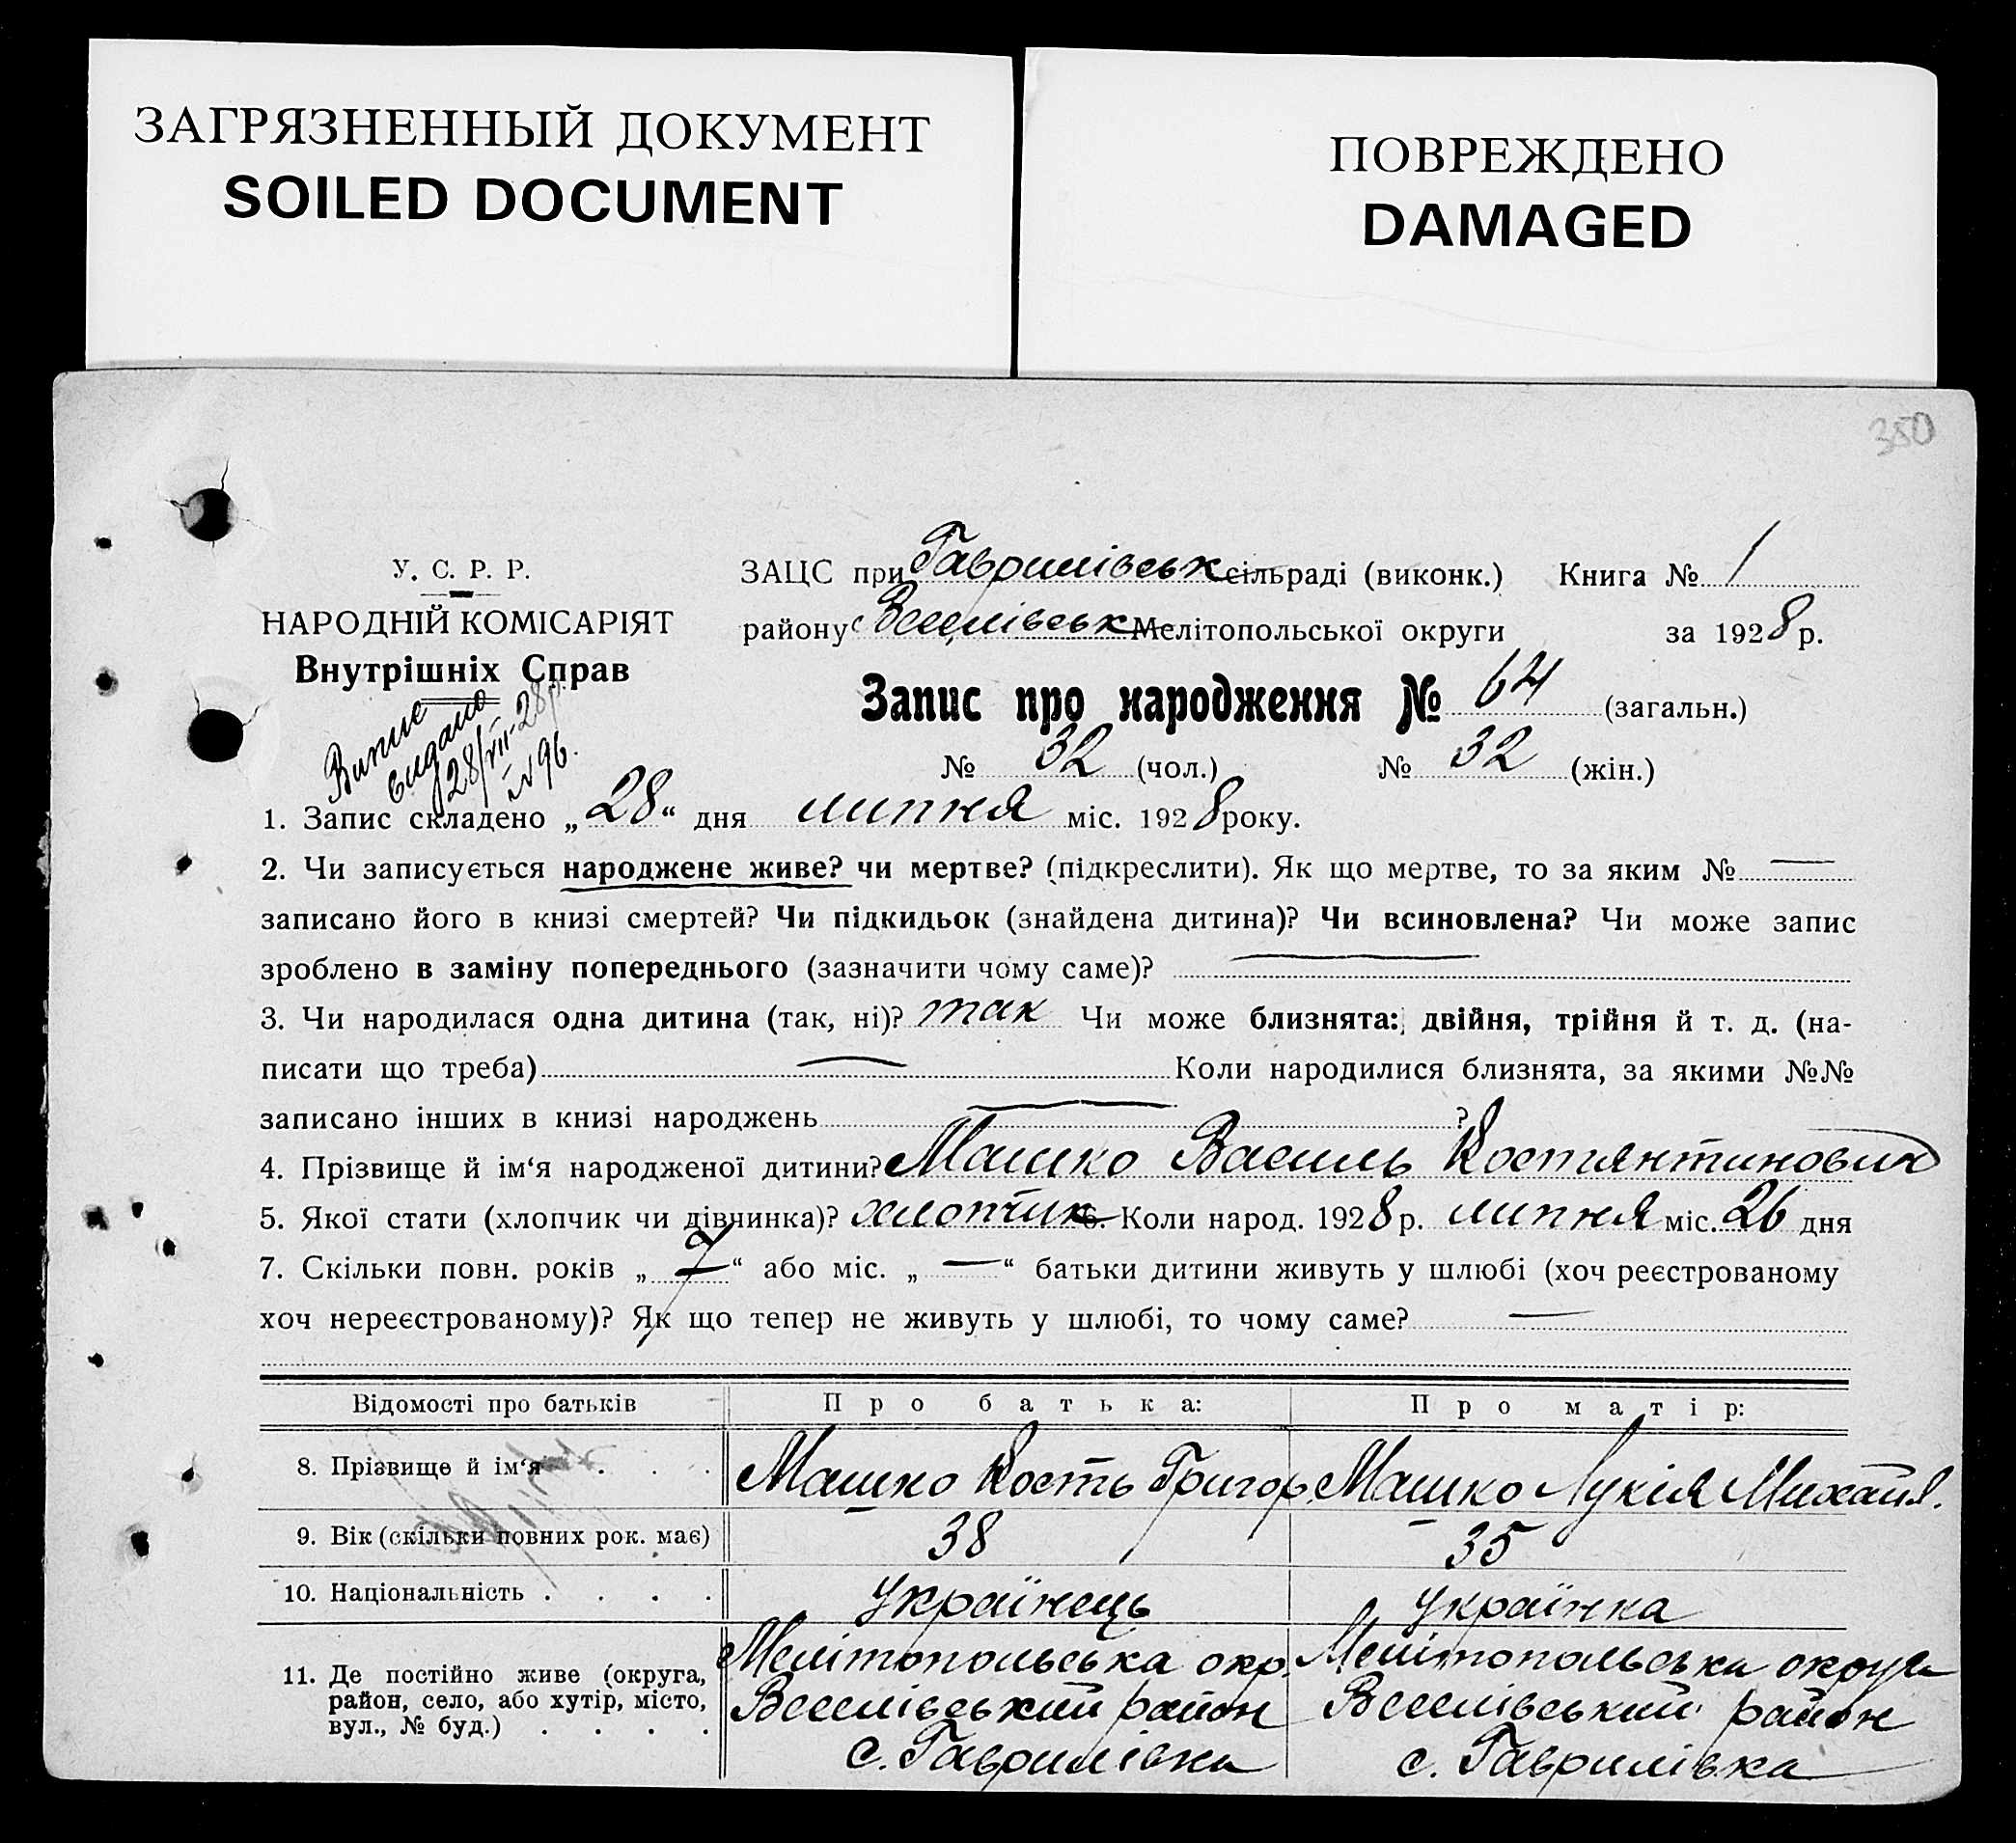 ЗАГРЯЗНЕННЫЙ ДОКУМЕНТ
SOILED DOCUMENT
ПОВРЕЖДЕНО
DAMAGED
350
У. С. Р. Р.
НАРОДНІЙ КОМІСАРІЯТ
Внутрішніх Справ
Випис
видано
28/VII-28р.
№ 96.
ЗАЦС при Гаврилівськ сільраді (виконк.) Книга № 1
району Веселівськ Мелітопольської округи за 1928 р.
Запис про народження № 64 (загальн.)
№ 32 (чол.) № 32 (жін.)
1. Запис складено „28“ дня липня міс. 1928 року.
2. Чи записується народжене живе? чи мертве? (підкреслити). Як що мертве, то за яким № —
записано його в книзі смертей? Чи підкидьок (знайдена дитина)? Чи всиновлена? Чи може запис
зроблено в заміну попереднього (зазначити чому саме)? —
3. Чи народилася одна дитина (так, ні)? так Чи може близнята: двійня, трійня й т. д. (на-
писати що треба) — Коли народилися близнята, за якими №№
записано інших в книзі народжень — ?
4. Прізвище й ім‘я народженої дитини? Машко Василь Костянтинович
5. Якої стати (хлопчик чи дівчинка)? хлопчик 6. Коли народ. 1928 р. липня міс. 26 дня
7. Скільки повн. років „7“ або міс. „—“ батьки дитини живуть у шлюбі (хоч реєстрованому
хоч нереєстрованому)? Як що тепер не живуть у шлюбі, то чому саме? —
Відомості про батьків Про батька: Про матір:
8. Прізвище й ім‘я . . . Машко Кость Григор. Машко Лукія Михайл.
9. Вік (скільки повних рок. має) 38 35
10. Національність . . . . Українець Українка
11. Де постійно живе (округа, район, село, або хутір, місто, вул., № буд.) . . . .
Мелітопольська окр. Веселівський район с. Гаврилівка
Мелітопольська округа Веселівський район с. Гаврилівка